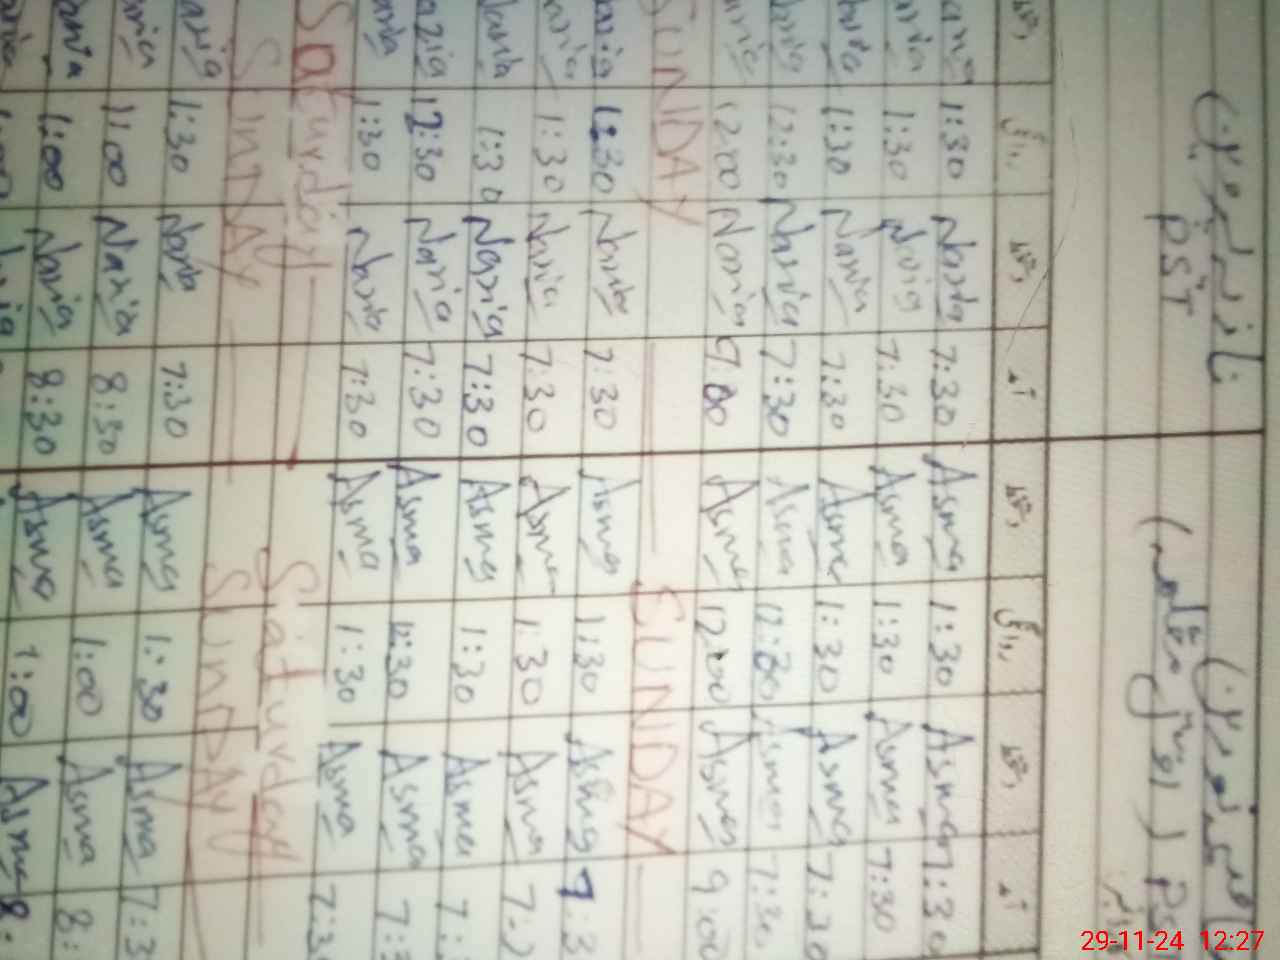 PST
دستخط روانگی دستخط آمد دستخط روانگی دستخط آمد
1:30 Nazia 7:30 Asma 1:30 Asma 7:30
1:30 Nazia 7:30 Asma 1:30 Asma 7:30
1:30 Nazia 7:30 Asma 1:30 Asma 7:30
12:30 Nazia 7:30 Asma 12:30 Asma 7:30
12:00 Nazia 9:00 Asma 12:00 Asma 9:00
SUNDAY SUNDAY
1:30 Nazia 7:30 Asma 1:30 Asma 7:3
1:30 Nazia 7:30 Asma 1:30 Asma 7:
1:30 Nazia 7:30 Asma 1:30 Asma 7:
azia 12:30 Nazia 7:30 Asma 12:30 Asma 7:
1:30 Nazia 7:30 Asma 1:30 Asma 7:3
Saturday Saturday
SUNDAY SUNDAY
azia 1:30 Nazia 7:30 Asma 1:30 Asma 7:3
11:00 Nazia 8:30 Asma 1:00 Asma 8:
1:00 Nazia 8:30 Asma 1:00 Asma 8:
29-11-24 12:27